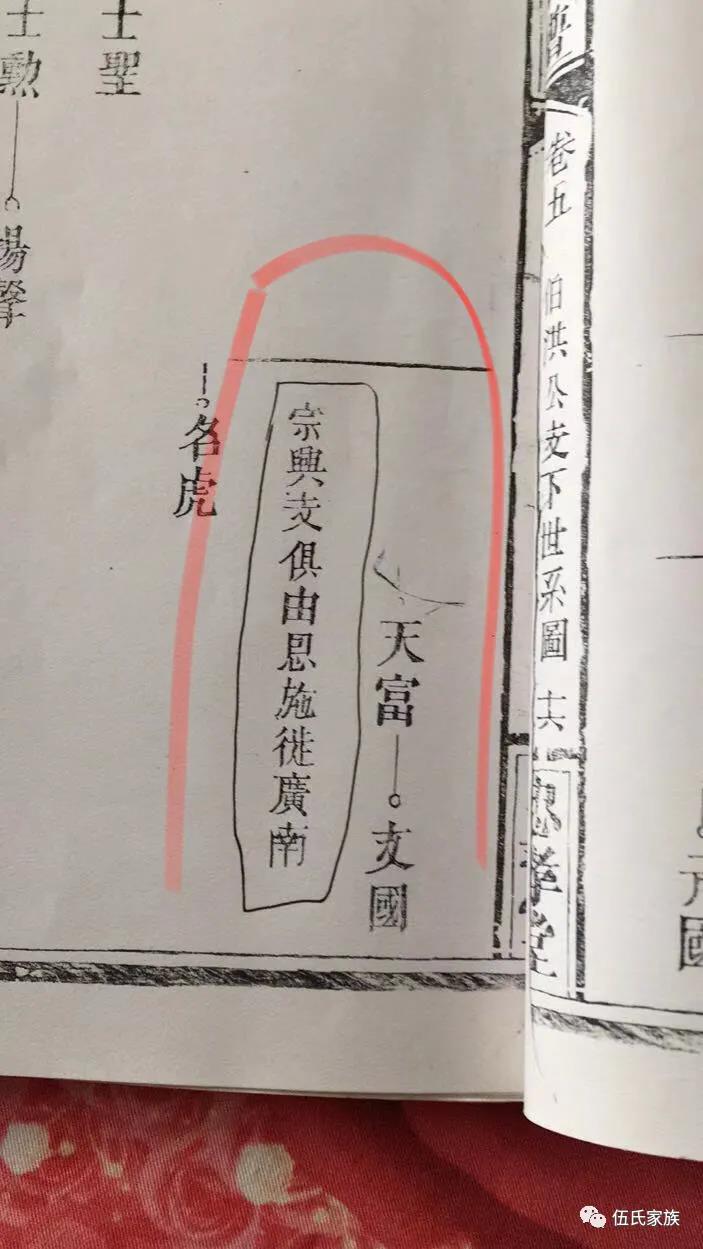 譜
卷五 伯洪公支下世系圖 十六
忠孝堂
元國
天富 文國
宗興支俱由恩施徙廣南
名虎
士聖
士勳 揚聲
伍氏家族